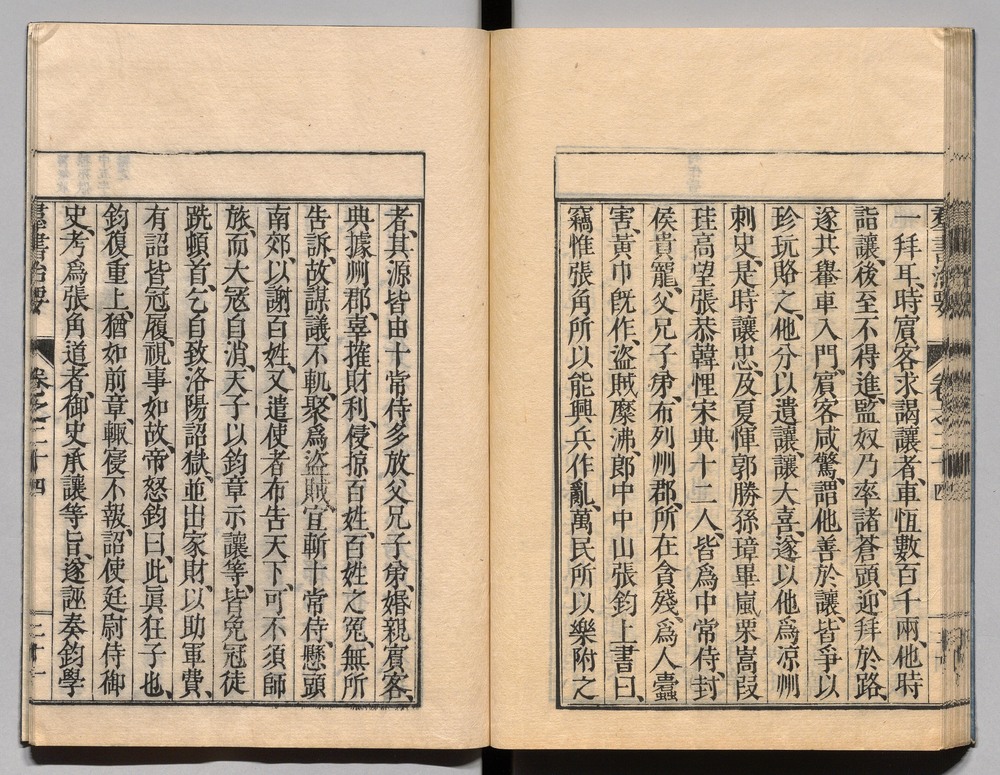 羣書治要 卷之二十四
一拜耳、時賓客求謁讓者、車恆數百千兩、他時
詣讓、後至不得進、監奴乃率諸蒼頭、迎拜於路、
遂共轝車入門、賓客咸驚、謂他善於讓、皆爭以
珍玩賂之、他分以遺讓、讓大喜、遂以他爲凉州
刺史、是時讓忠、及夏惲郭勝孫璋畢嵐栗嵩叚
珪高望張恭韓悝宋典十二人、皆爲中常侍、封
侯貴寵、父兄子弟、布列州郡、所在貪殘、爲人蠹
害、黃巾旣作、盜賊糜沸、郎中中山張鈞上書曰、
竊惟張角所以能興兵作亂、萬民所以樂附之
者、其源皆由十常侍多放父兄子弟、婚親賓客、
典據州郡、辜搉財利、侵掠百姓、百姓之冤、無所
告訴、故謀議不軌、聚爲盜賊、宜斬十常侍、懸頭
南郊、以謝百姓、又遣使者布告天下、可不須師
旅、而大冦自消、天子以鈞章示讓等、皆免冠徒
跣頓首、乞自致洛陽詔獄、並出家財、以助軍費、
有詔皆冠履、視事如故、帝怒鈞曰、此眞狂子也、
鈞復重上、猶如前章、輙寑不報、詔使廷尉侍御
史、考爲張角道者、御史承讓等旨、遂誣奏鈞學
羣書治要 卷之二十四 二十一